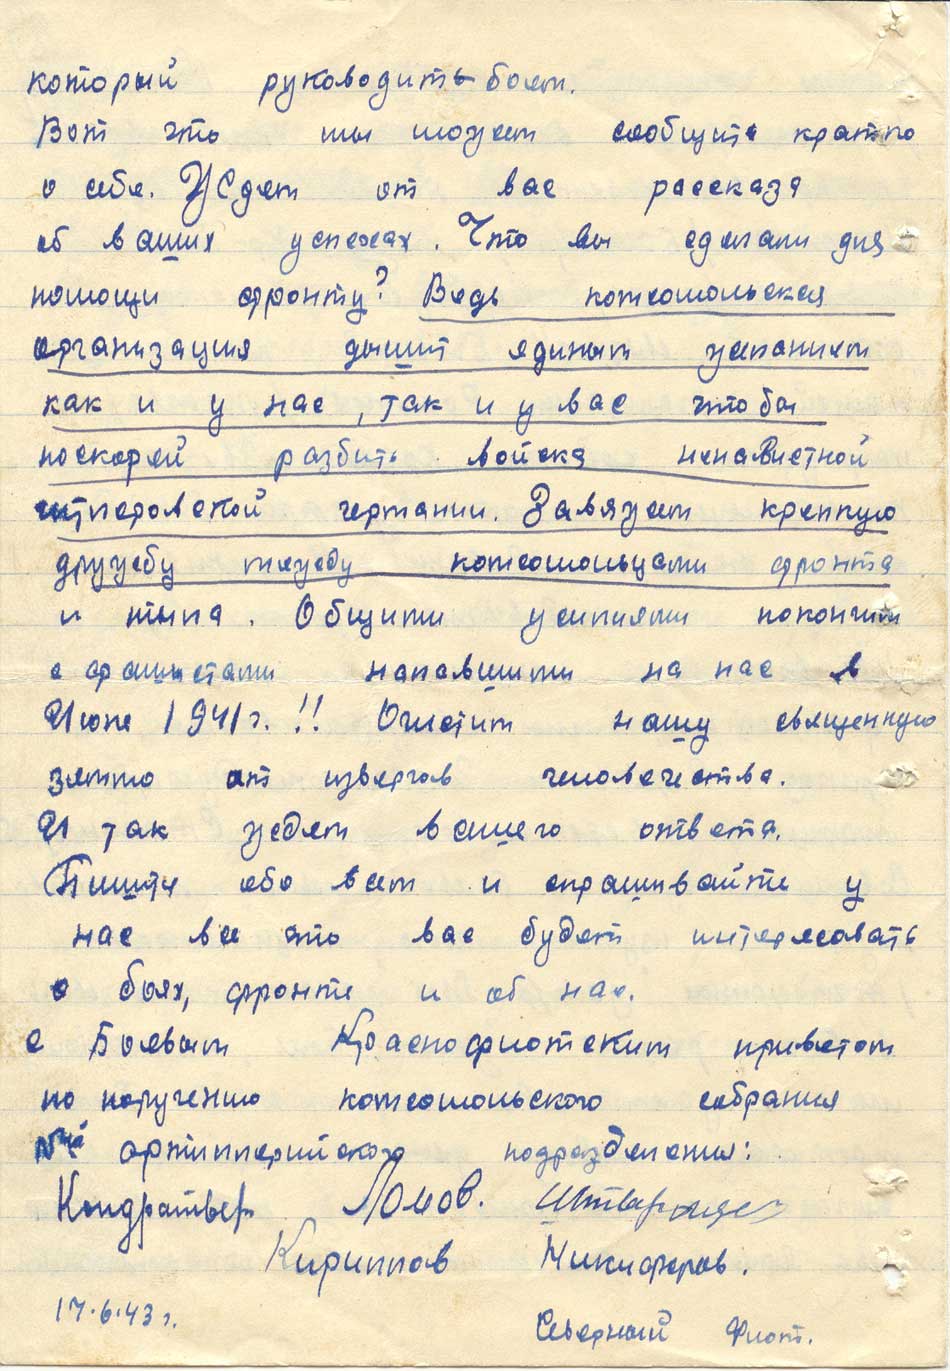 который руководить боем.
Вот что мы можем сообщить кратко
о себе. Ждем от вас рассказа
об ваших успехах. Что вы сделали для
помощи фронту? Ведь комсомольская
организация дышит единым желанием
как и у нас, так и у вас что бы
поскорей разбить войска ненавистной
гитлеровской германии. Завяжем крепкую
дружбу между комсомольцами фронта
и тыла. Общими усилиями покончим
с фашистами напавшими на нас в
Июне 1941 г. !! Очистим нашу священную
землю от извергов человечества.
И так ждем вашего ответа.
Пишите обо всем и спрашивайте у
нас все что вас будет интересовать
о боях, фронте и об нас.
с Боевым Краснофлотским приветом
по поручению комсомольского собрания
артиллерийского подразделения:
Кондратьев Ломов.
Кириллов Никифоров.
17.6.43 г.
Северный Флот.